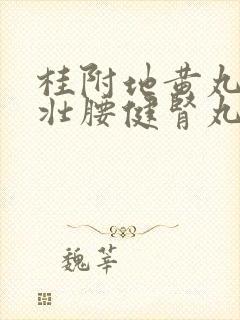 桂附地黄丸
壮腰健肾丸
魏莘